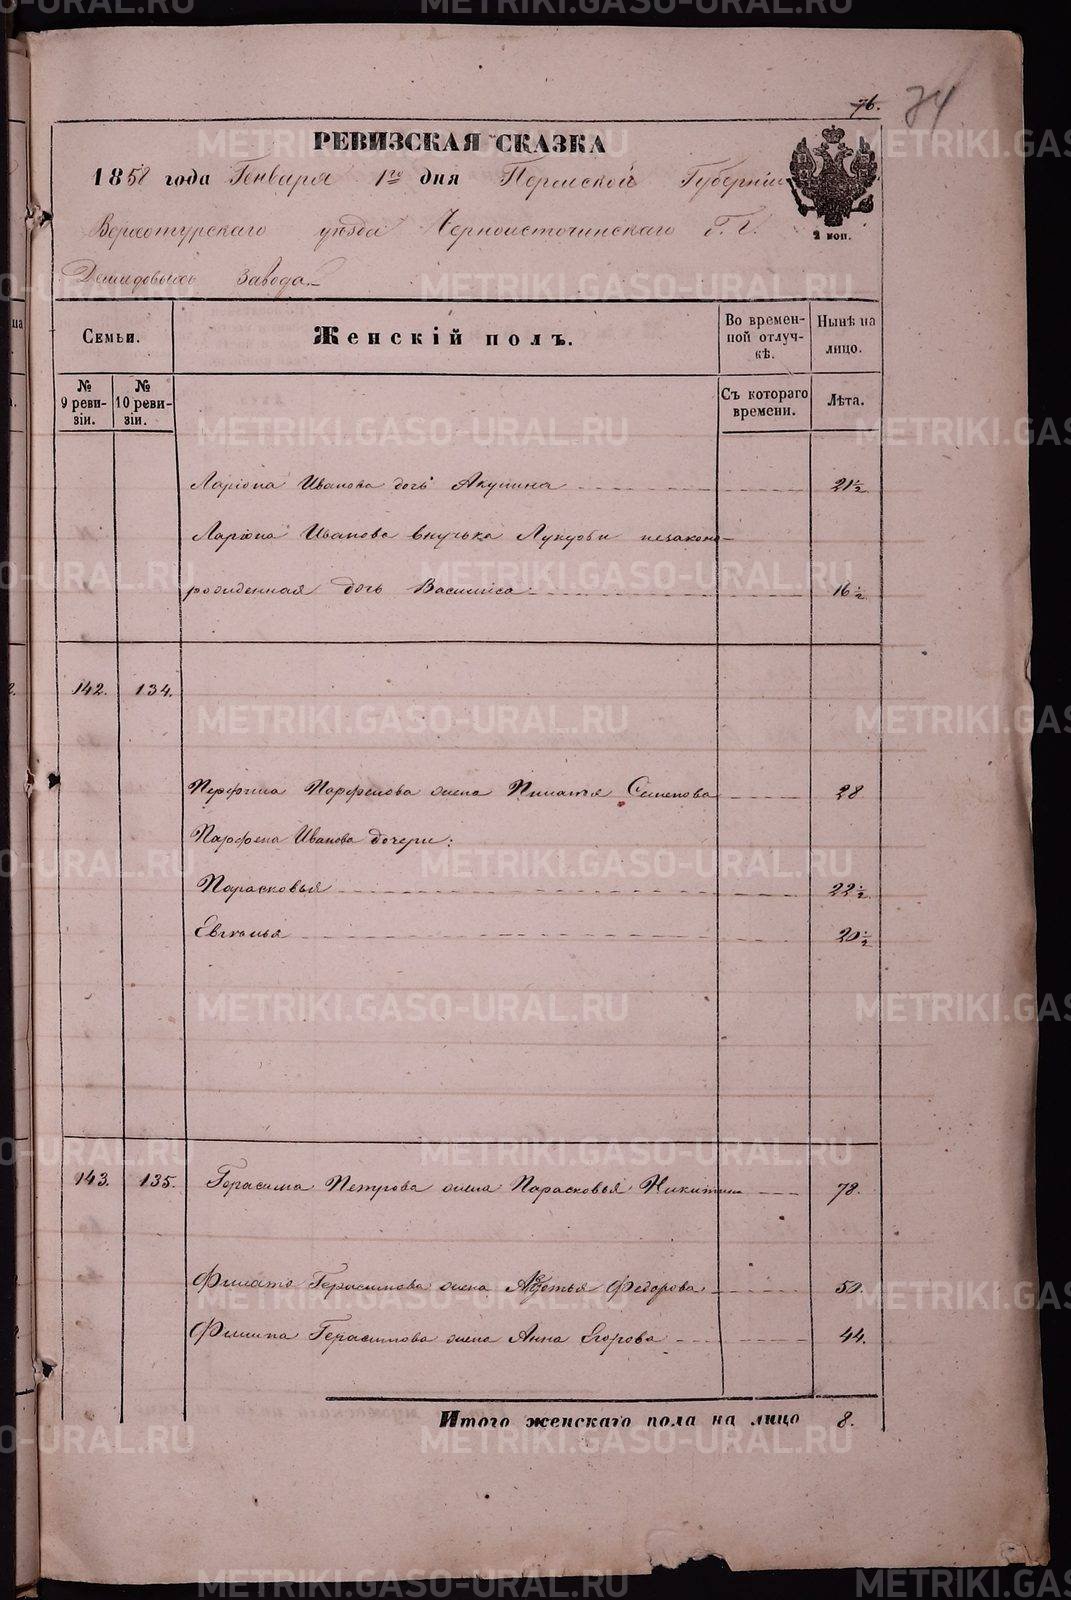 76.
74
РЕВИЗСКАЯ СКАЗКА
1858 года Генваря 1го дня Пермской Губерніи
2 коп.
Верхотурскаго уѣзда Черноисточинскаго Г.Г.
Демидовыхъ завода
Семьи.
Женскій полъ.
Во временной отлучкѣ.
Нынѣ на лицо.
№ 9 ревизіи.
№ 10 ревизіи.
Съ котораго времени.
Лѣта.
Ларіона Иванова дочь Акулина 21½
Ларіона Иванова внучька незаконо-
рожденная дочь Василиса 16½
142. 134.
Парфенова жена Семенова 28
Парфена Иванова дочери:
Парасковья 22½
20½
143. 135. Герасима Петрова жена Парасковья Никитина 78.
Герасимова жена Федорова 50.
Филипа Герасимова жена Анна Егорова 44.
Итого женскаго пола на лицо 8.
METRIKI.GASO-URAL.RU